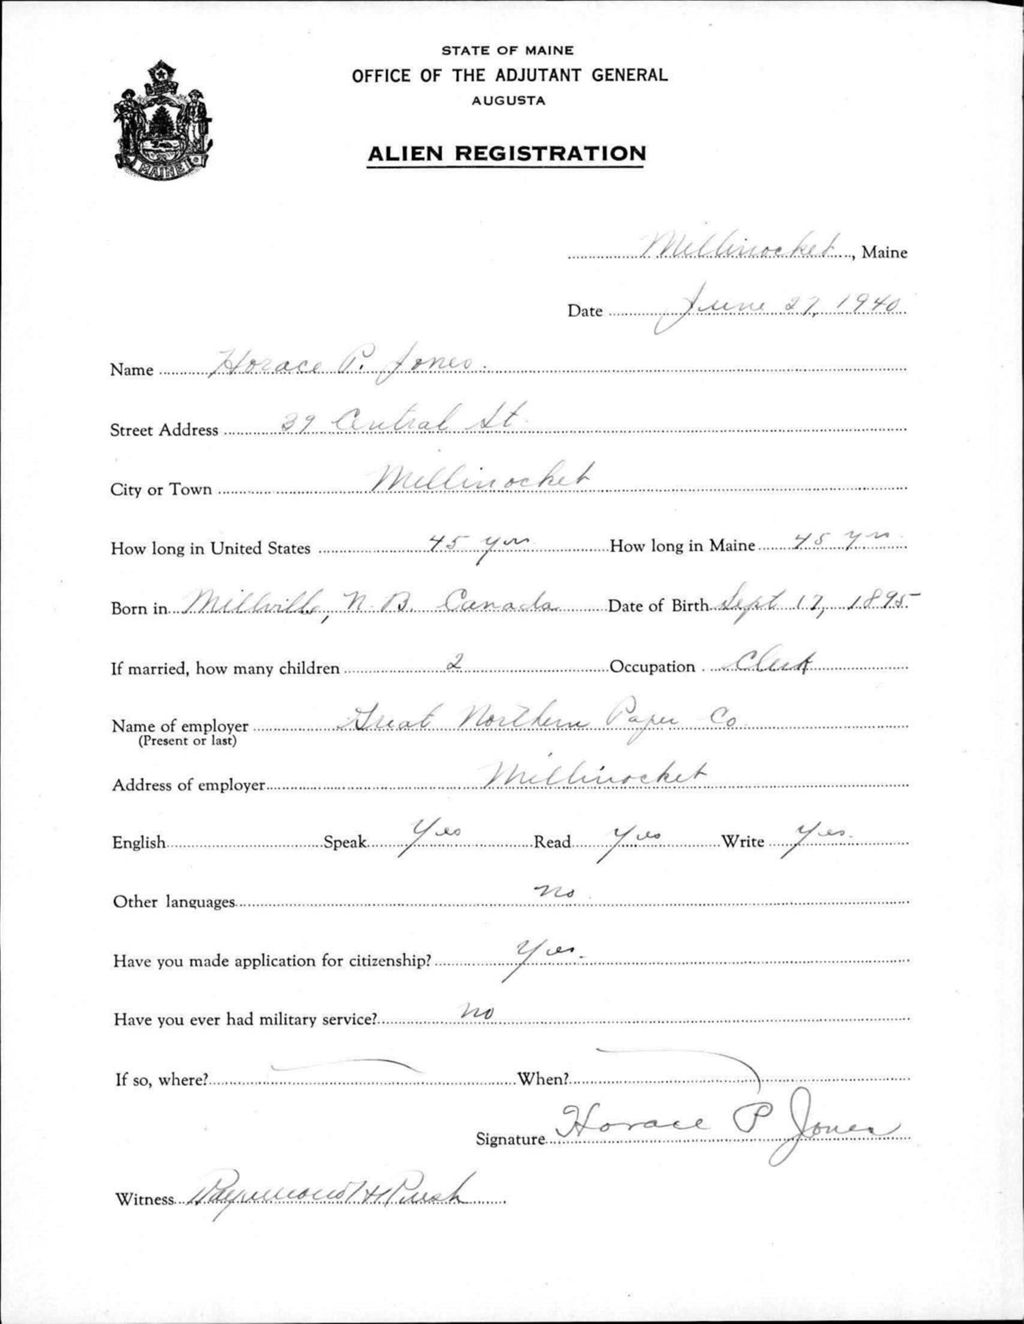 STATE OF MAINE
OFFICE OF THE ADJUTANT GENERAL
AUGUSTA
ALIEN REGISTRATION
MAINE
Millinocket, Maine
Date June 27, 1940
Name Horace P. Jones.
Street Address 39 Central St.
City or Town Millinocket
How long in United States 45 yrs How long in Maine 45 yrs
Born in Millville, N.B. Canada Date of Birth Sept 17, 1895
If married, how many children 2 Occupation Clerk
Name of employer Great Northern Paper Co
(Present or last)
Address of employer Millinocket
English Speak Yes Read Yes Write Yes.
Other languages no
Have you made application for citizenship? Yes.
Have you ever had military service? no
If so, where? When?
Signature Horace P Jones
Witness Raymond H Rush